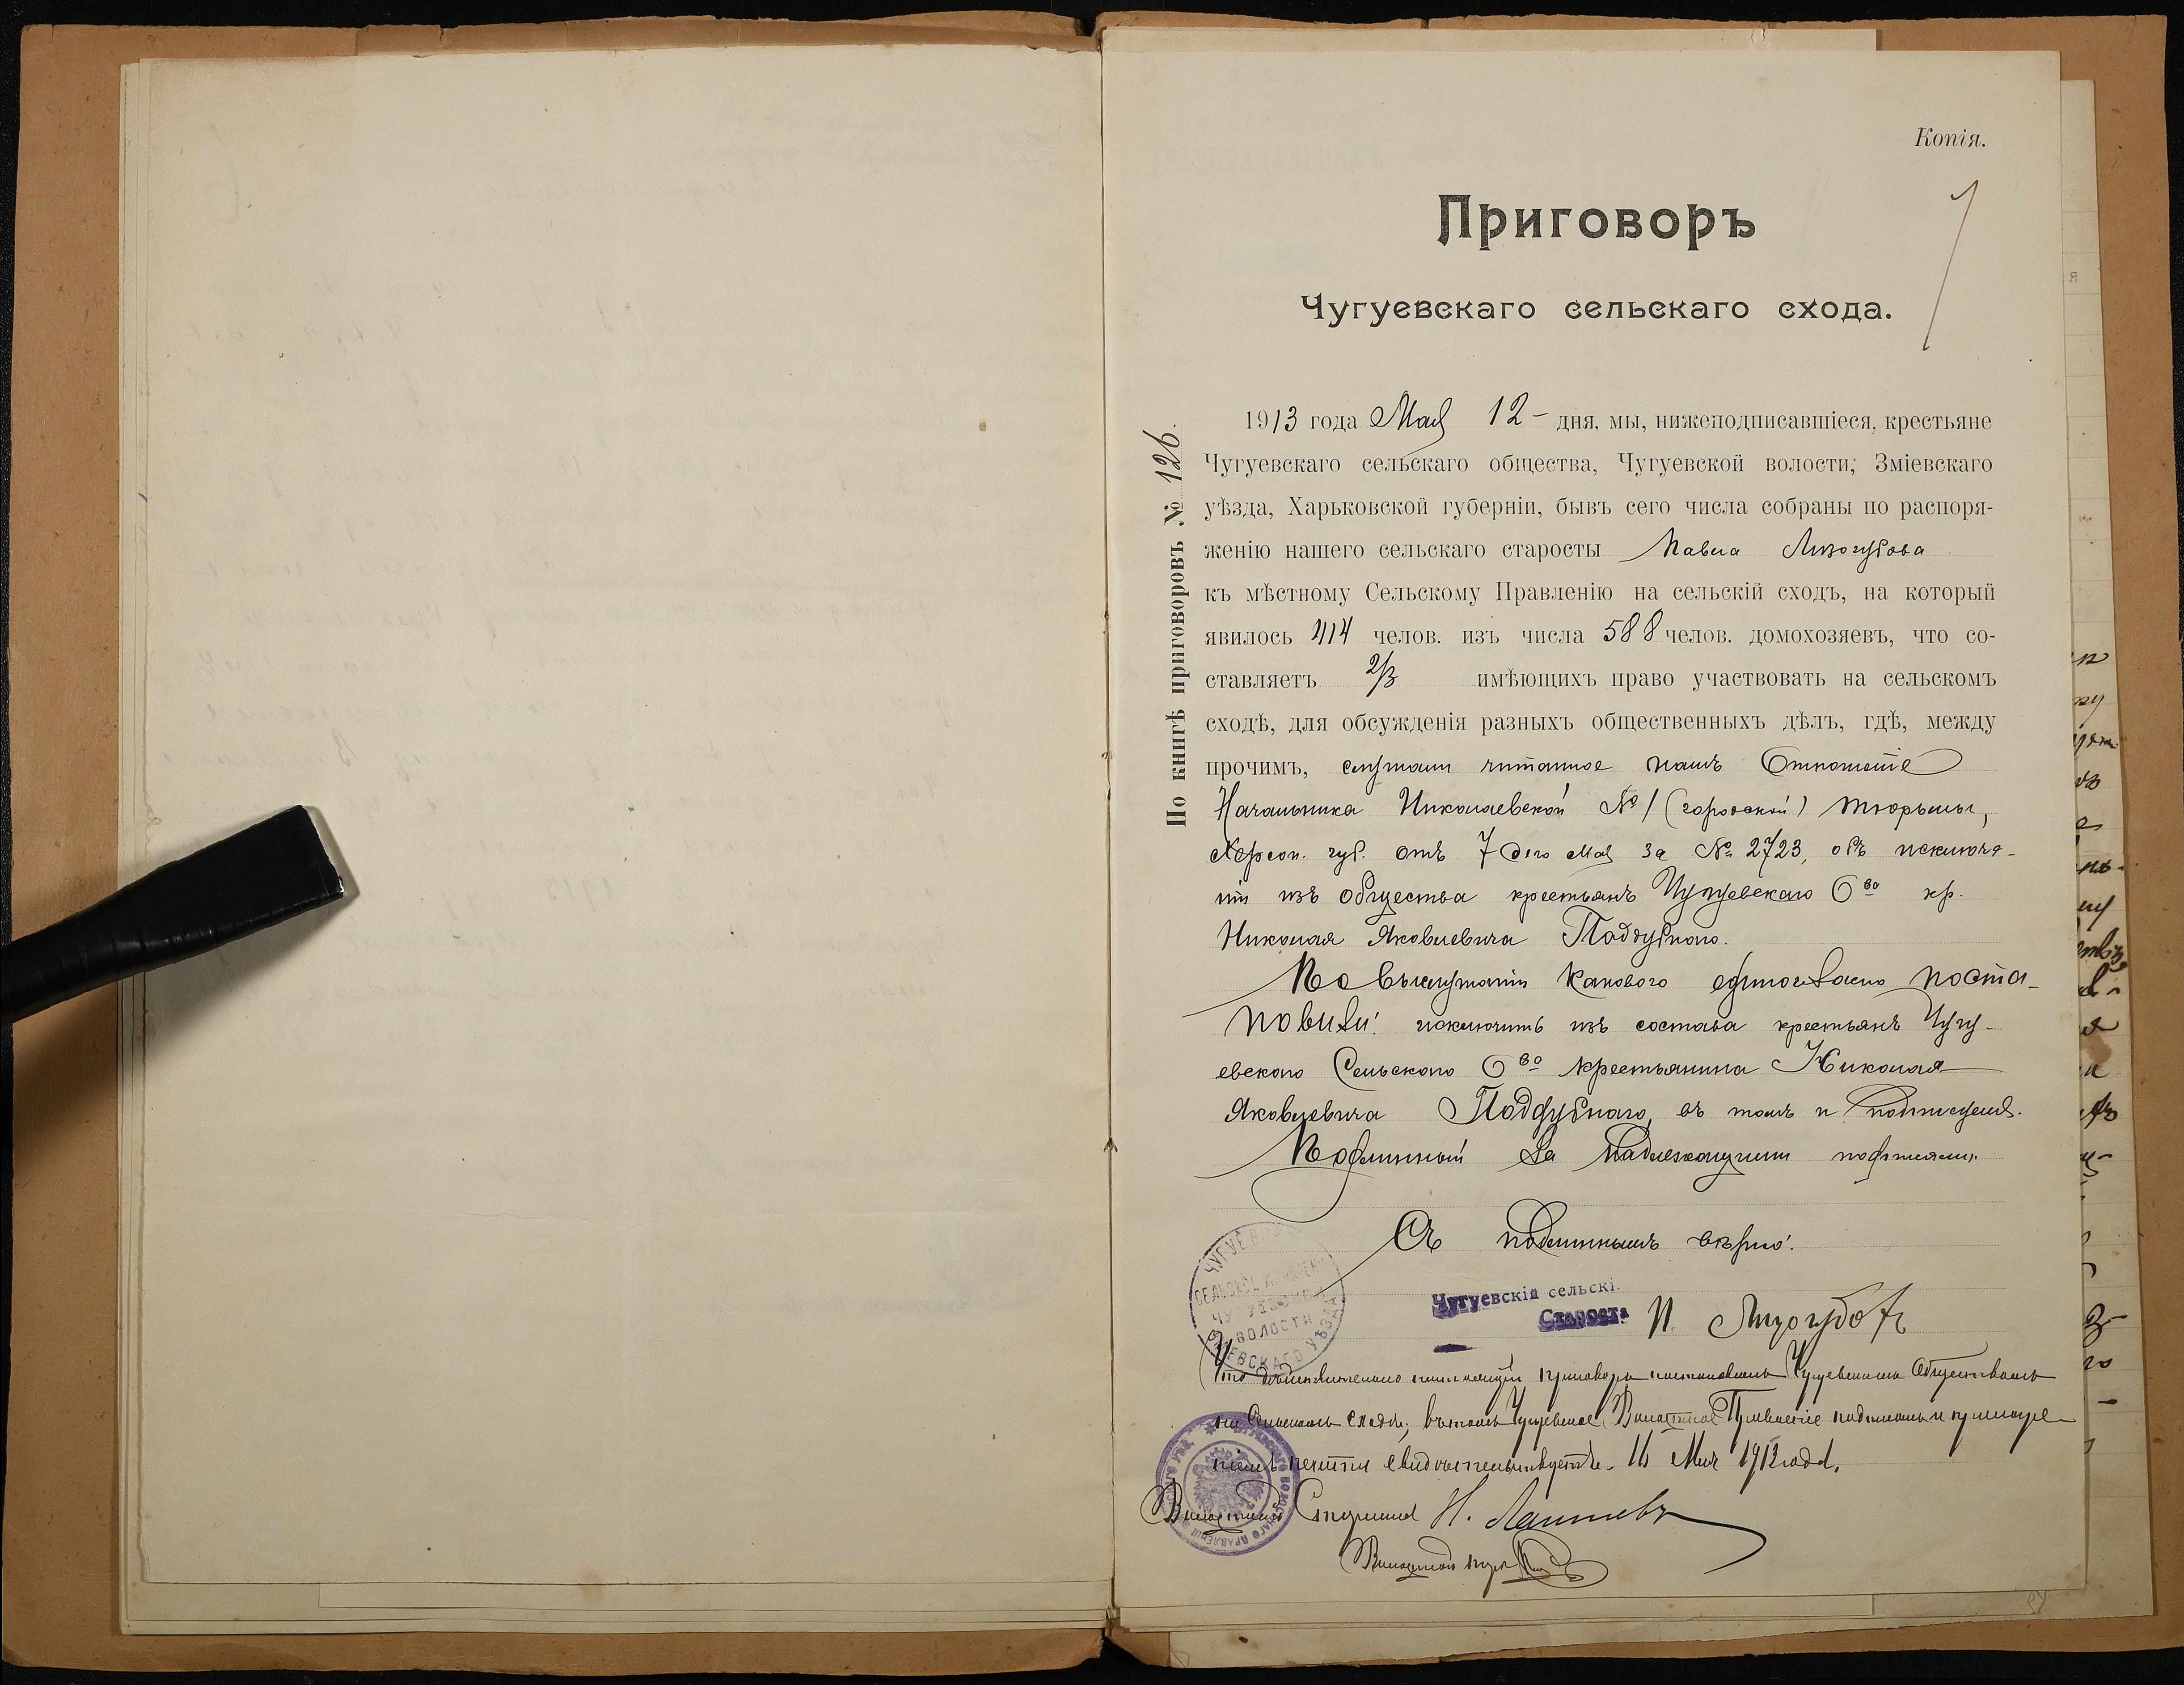 Копія.
7
Приговоръ
Чугуевскаго сельскаго схода.
По книгѣ приговоровъ № 126.
1913 года Мая 12 - дня, мы, нижеподписавшіеся, крестьяне
Чугуевскаго сельскаго общества, Чугуевской волости, Зміевскаго
уѣзда, Харьковской губерніи, бывъ сего числа собраны по распоря-
женію нашего сельскаго старосты Павла Лизогубова
къ мѣстному Сельскому Правленію на сельскій сходъ, на который
явилось 414 челов. изъ числа 588 челов. домохозяевъ, что со-
ставляетъ 2/3 имѣющихъ право участвовать на сельскомъ
сходѣ, для обсужденія разныхъ общественныхъ дѣлъ, гдѣ, между
прочимъ, слушали читанное намъ Отношеніе
Начальника Николаевской № 1 (городской) тюрьмы,
Херсон. губ. отъ 7 сего Мая за № 2723, объ исключе-
ніи изъ общества крестьянъ Чугуевскаго О во кр.
Николая Яковлевича Поддубнаго.
По выслушаніи каковаго единогласно поста-
новили: исключить изъ состава крестьянъ Чугу-
евскаго Сельскаго О во крестьянина Николая
Яковлевича Поддубнаго, въ томъ и подписуемся.
Подлинный за надлежащими подписями.
Съ подлиннымъ вѣрно:
ЧУГУЕВ
СЕЛЬСКОЕ
ВОЛОСТИ
ЕВСКАГО УѢЗДА
Чугуевскій сельскі
Староста П. Лизогубовъ
Что дѣйствительно настоящій приговоръ постановленъ Чугуевскимъ Обществомъ
на Сельскомъ сходѣ, въ томъ Чугуевское Волостное Правленіе подписомъ и приложе-
ніемъ печати свидѣтельствуетъ. 16 Мая 1913 года.
Волостной Старшина Н.
Волостной